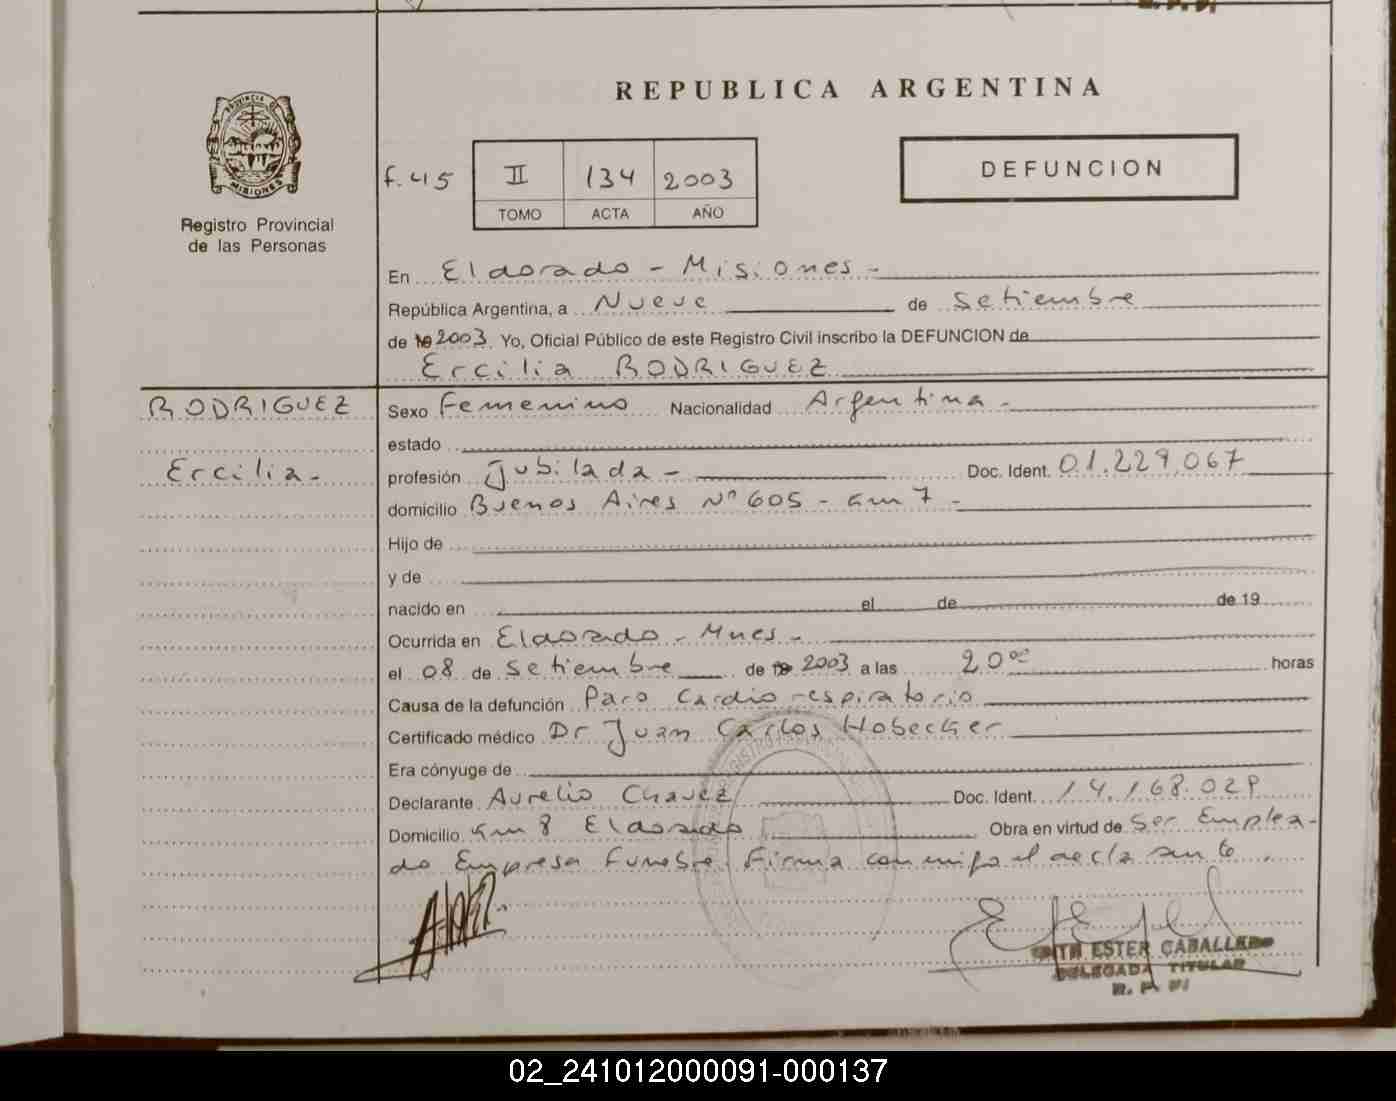 REPUBLICA ARGENTINA
PROVINCIA D
MISIONES
Registro Provincial
de las Personas
f. 45
II 134 2003
TOMO ACTA AÑO
DEFUNCION
En Eldorado - Misiones -
República Argentina, a Nueve de Setiembre
de 19 2003 Yo, Oficial Público de este Registro Civil inscribo la DEFUNCION de
Ercilia RODRIGUEZ
RODRIGUEZ
Ercilia -
Sexo Femenino Nacionalidad Argentina -
estado
profesión Jubilada - Doc. Ident. 01.229.067
domicilio Buenos Aires Nº 605 - km 7 -
Hijo de
y de
nacido en el de de 19
Ocurrida en Eldorado - Mnes -
el 08 de Setiembre de 19 2003 a las 20 00 horas
Causa de la defunción Paro Cardio respiratorio
Certificado médico Dr Juan Carlos Hobecker
Era cónyuge de
Declarante Aurelio Chavez Doc. Ident. 14.168.029
Domicilio km 8 Eldorado Obra en virtud de Ser Emplea-
do Empresa Funebre. Firma conmigo el declarante.
EDITH ESTER CABALLERO
DELEGADA TITULAR
R. P. P.
02_241012000091-000137